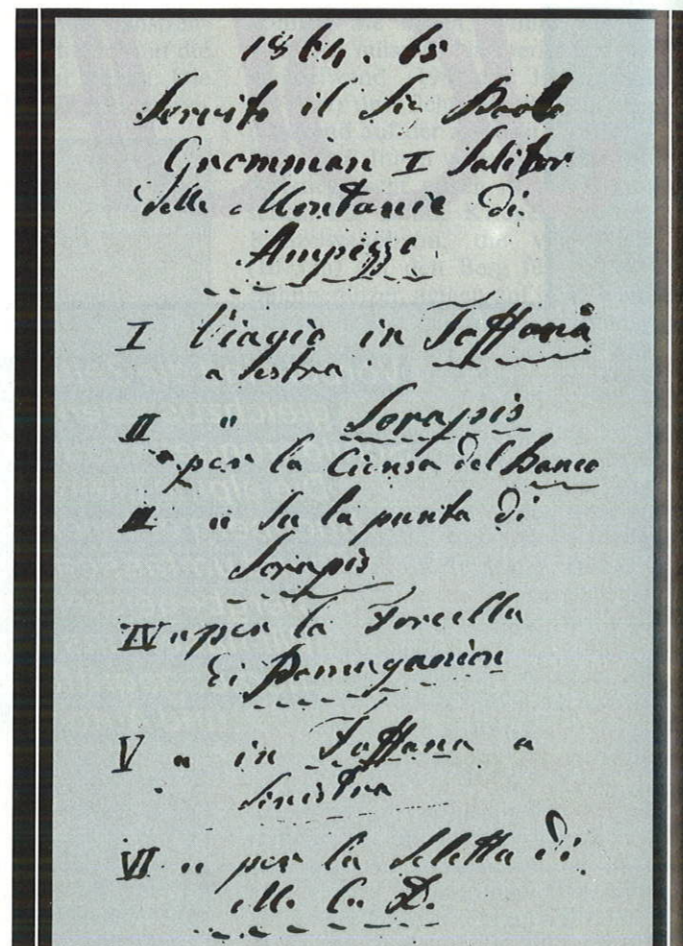 1864. 65
Servito il Sig Paolo
Gromnian I Salitor
delle Montanie di
Ampezzo
I Viagio in Toffana
a destra
II " Sorapis
per la Ciensa del Banco
III " Su la punta di
Sorapis
IV " per la Forcella
di
V " in Toffana a
Sinistra
VI " per la Seletta di